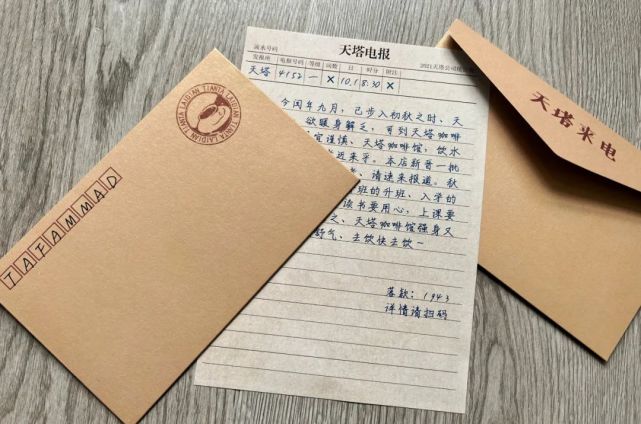 TIANTA LAIDIAN TIANTA LAIDIAN
TATAMMAD
流水号码
天塔电报
发报地 电报号码 等级 词数 日 时分 附注
2021天塔公司
天塔 4152 一 × 10.1 8:30 ×
今闰年九月，己步入初秋之时、天
欲暖身解乏，可到天塔咖啡
宜谨慎、天塔咖啡馆，饮水
近来乎。本店新晋一批
请速来报道。秋
班的升班、入学的
读书要用心，上课要
之、天塔咖啡馆强身又
舒气、去饮快去饮一
落款：1943
详情请扫码
天塔来电